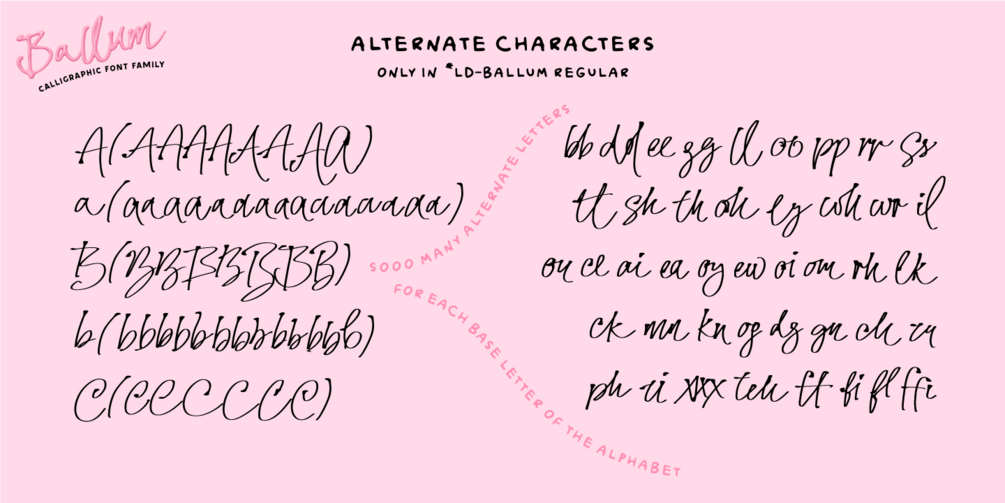 Ballum
CALLIGRAPHIC FONT FAMILY
ALTERNATE CHARACTERS
ONLY IN *LD-BALLUM REGULAR
A(AAAAAAAA)
a(aaaaaaaaaaaaaaa)
B(BBBBBBB)
b(bbbbbbbbbbbbbb)
C(CCCCCCC)
SOOO MANY ALTERNATE LETTERS
FOR EACH BASE LETTER OF THE ALPHABET
bb dd ee gg ll oo pp rr ss
tt sh th oh ey wh wr il
ou cl ai ea oy ew oi om rh lk
ck mn kn og dg gn ch
ph xxx tch ft fi fl ffi